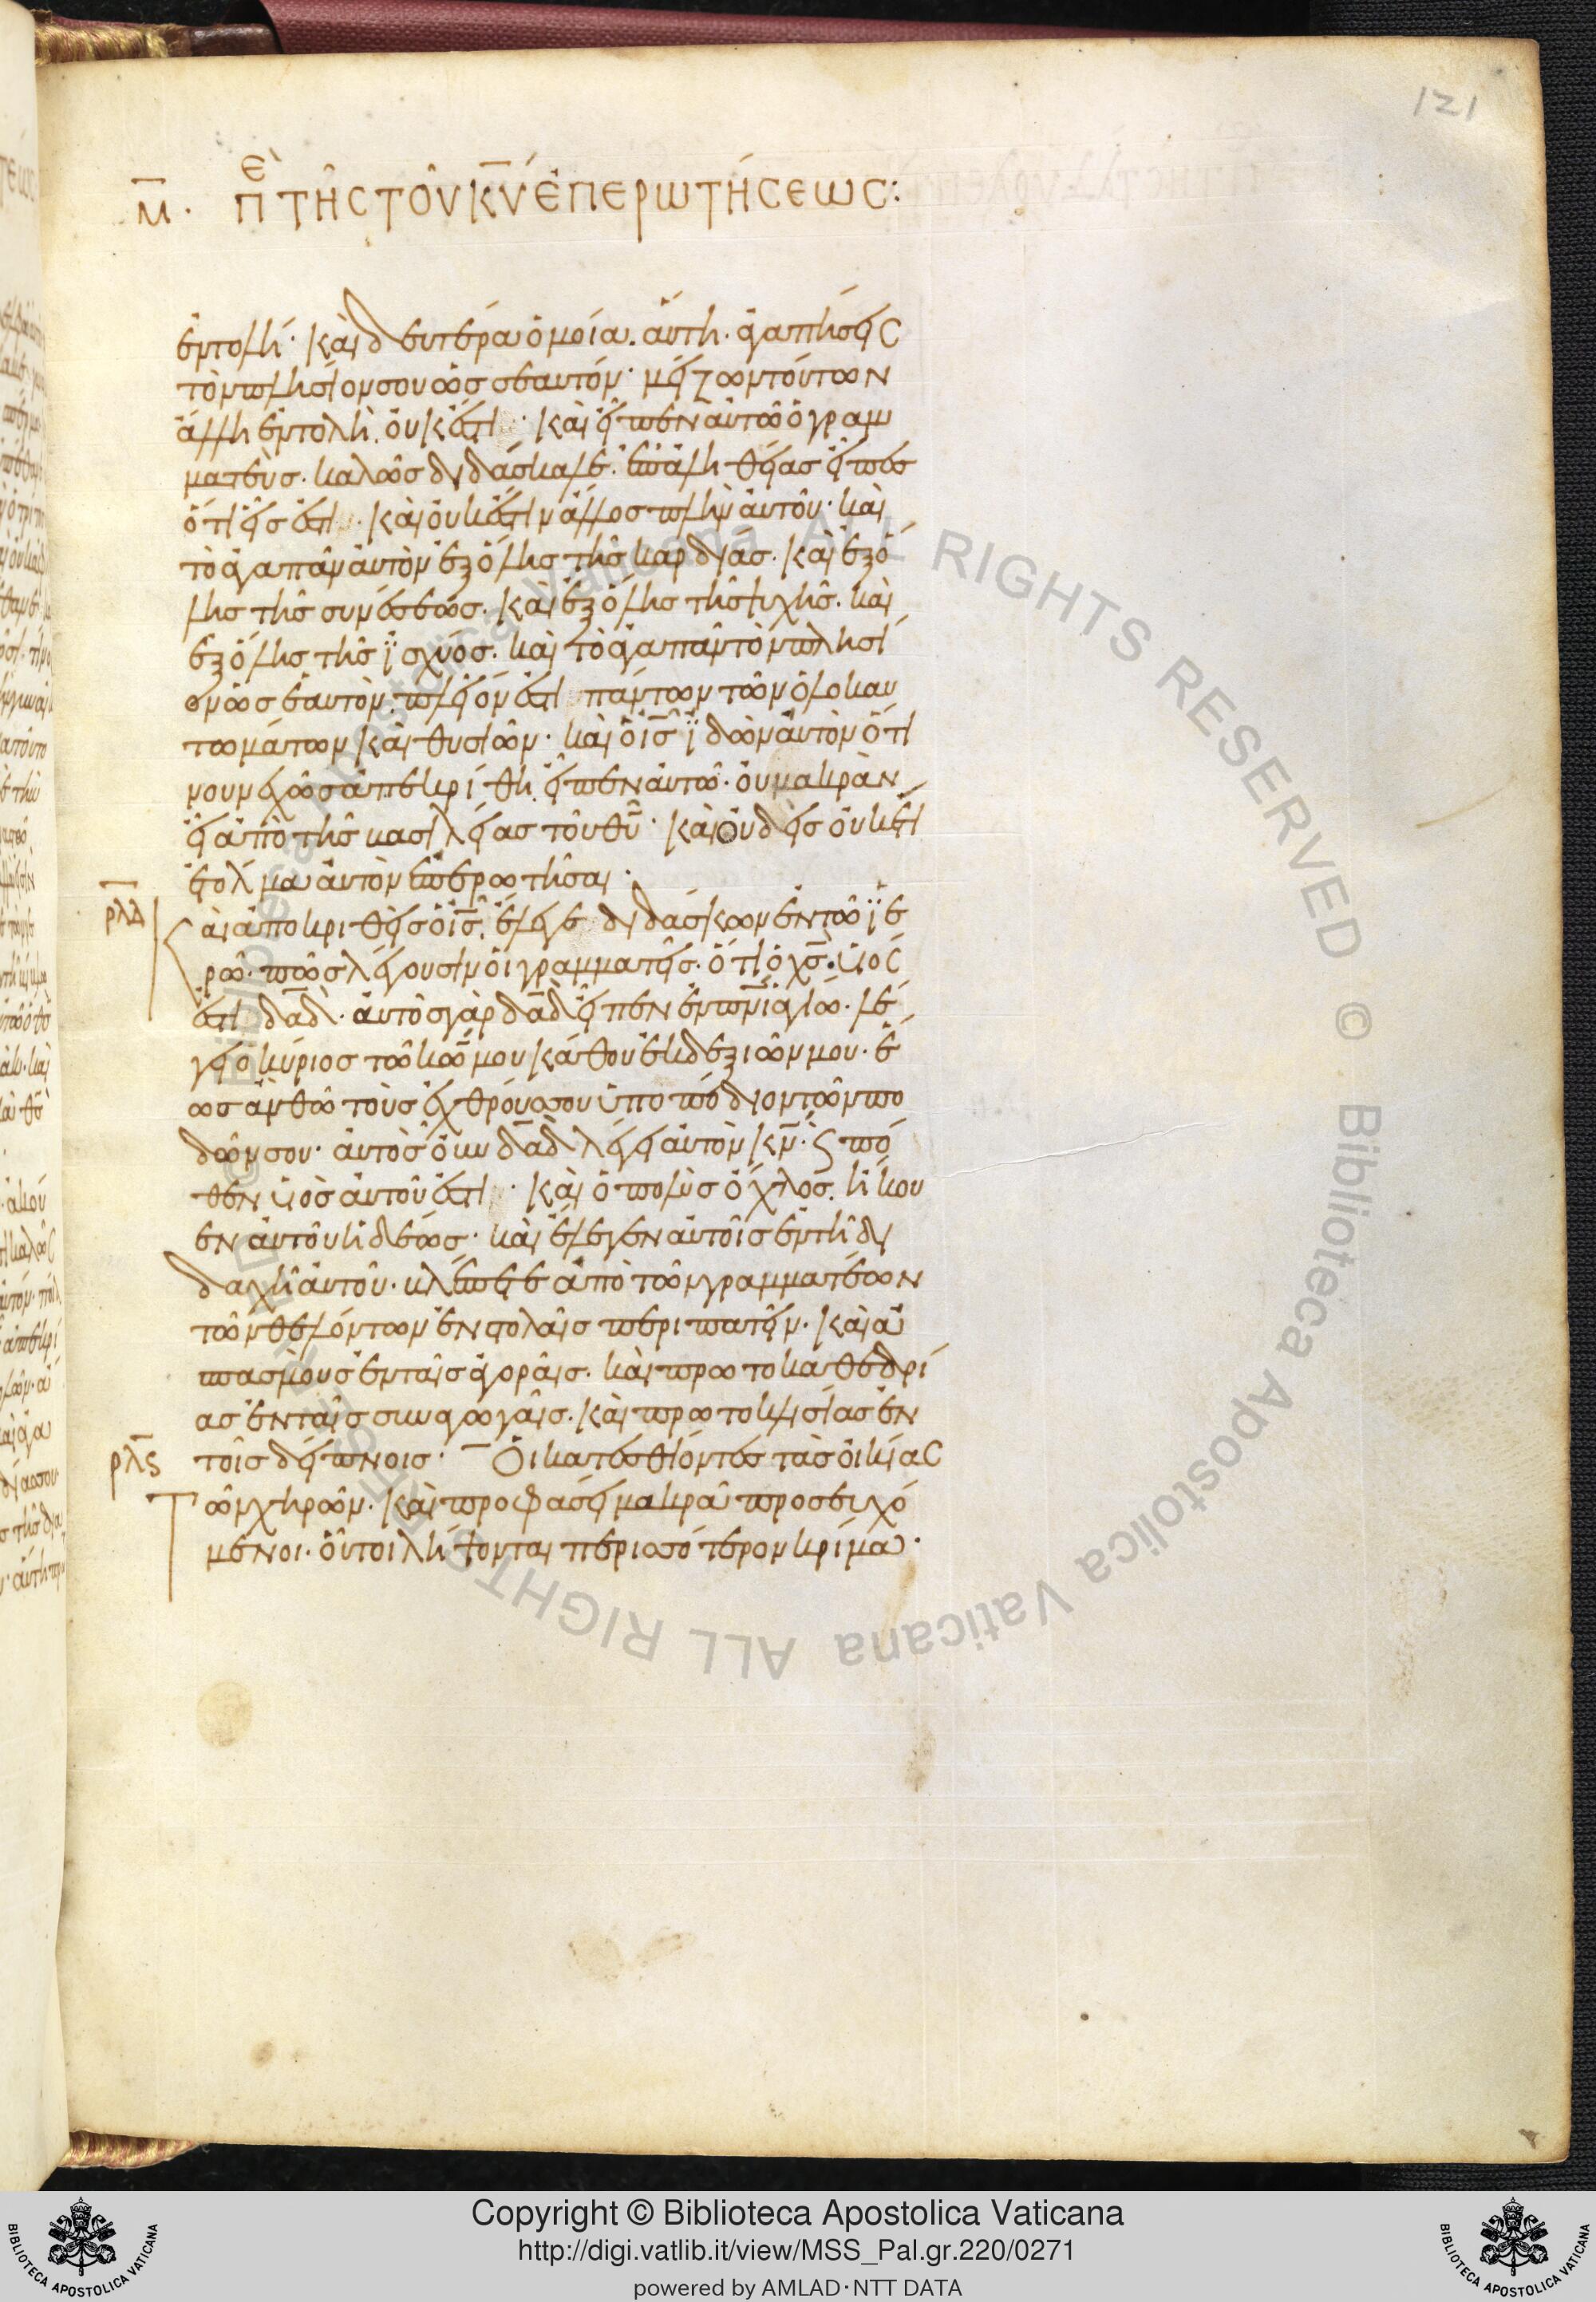 121
Μ. ΠΕ ΤΗΣ ΤΟΥ ΚΥ ΕΠΕΡΩΤΗΣΕΩΣ:
ἐντολή· καὶ δευτέρα ὁμοία. αὕτη· ἀγαπήσεις
τὸν πλησίον σου ὡς σεαυτόν· μείζων τούτων
ἄλλη ἐντολὴ οὐκ ἔστι· καὶ εἶπεν αὐτῶ ὁ γραμ
ματεὺς· καλῶς διδάσκαλε· ἐπ' ἀληθείας εἶπες
ὅτι εἷς ἐστι· καὶ οὐκ ἔστιν ἄλλος πλὴν αὐτοῦ· καὶ
τὸ ἀγαπᾶν αὐτὸν ἐξ ὅλης τῆς καρδίας· καὶ ἐξ ὅ
λης τῆς συνέσεως· καὶ ἐξ ὅλης τῆς ψυχῆς· καὶ
ἐξ ὅλης τῆς ἰσχύος· καὶ τὸ ἀγαπᾶν τὸν πλησί
ον ὡς ἑαυτὸν· πλεῖόν ἐστι πάντων τῶν ὁλοκαυ
τωμάτων καὶ θυσιῶν· καὶ ὁ ις ἰδὼν αὐτὸν ὅτι
νουνεχῶς ἀπεκρίθη εἶπεν αὐτῶ· οὐ μακρὰν
εἶ ἀπὸ τῆς βασιλείας τοῦ θυ· καὶ οὐδεὶς οὐκέτι
ἐτόλμα αὐτὸν ἐπερωτῆσαι·
ρλδ Καὶ ἀποκριθεὶς ὁ ις ἔλεγε διδάσκων ἐν τῶ ἱε
ρῶ· πῶς λέγουσιν οἱ γραμματεῖς· ὅτι ὁ χς υἱος
ἐστι δαδ· αὐτὸς γὰρ δαδ εἶπεν ἐν πνι ἁγίω· λέ
γει ὁ κύριος τῶ κω μου κάθου ἐκ δεξιῶν μου· ἕ
ως ἂν θῶ τοὺς ἐχθρούς σου ὑποπόδιον τῶν πο
δῶν σου· αὐτὸς οὖν δαδ λέγει αὐτὸν κν· καὶ πό
θεν υἱὸς αὐτοῦ ἐστι· καὶ ὁ πολὺς ὄχλος ἤκου
εν αὐτοῦ ἡδέως· καὶ ἔλεγεν αὐτοῖς ἐν τῆ δι
δαχῆ αὐτοῦ· βλέπετε ἀπὸ τῶν γραμματέων
τῶν θελόντων ἐν στολαῖς περιπατεῖν· καὶ ἀ
σπασμοὺς ἐν ταῖς ἀγοραῖς· καὶ πρωτοκαθεδρί
ας ἐν ταῖς συναγωγαῖς· καὶ πρωτοκλισίας ἐν
ρλς τοῖς δείπνοις· Οἱ κατεσθίοντες τὰς οἰκίας
Τῶν χηρῶν· καὶ προφάσει μακρὰ προσευχό
μενοι· οὗτοι λήψονται περισσότερον κρίμα·
Copyright © Biblioteca Apostolica Vaticana
http://digi.vatlib.it/view/MSS_Pal.gr.220/0271
powered by AMLAD·NTT DATA
BIBLIOTECA APOSTOLICA VATICANA
BIBLIOTECA APOSTOLICA VATICANA